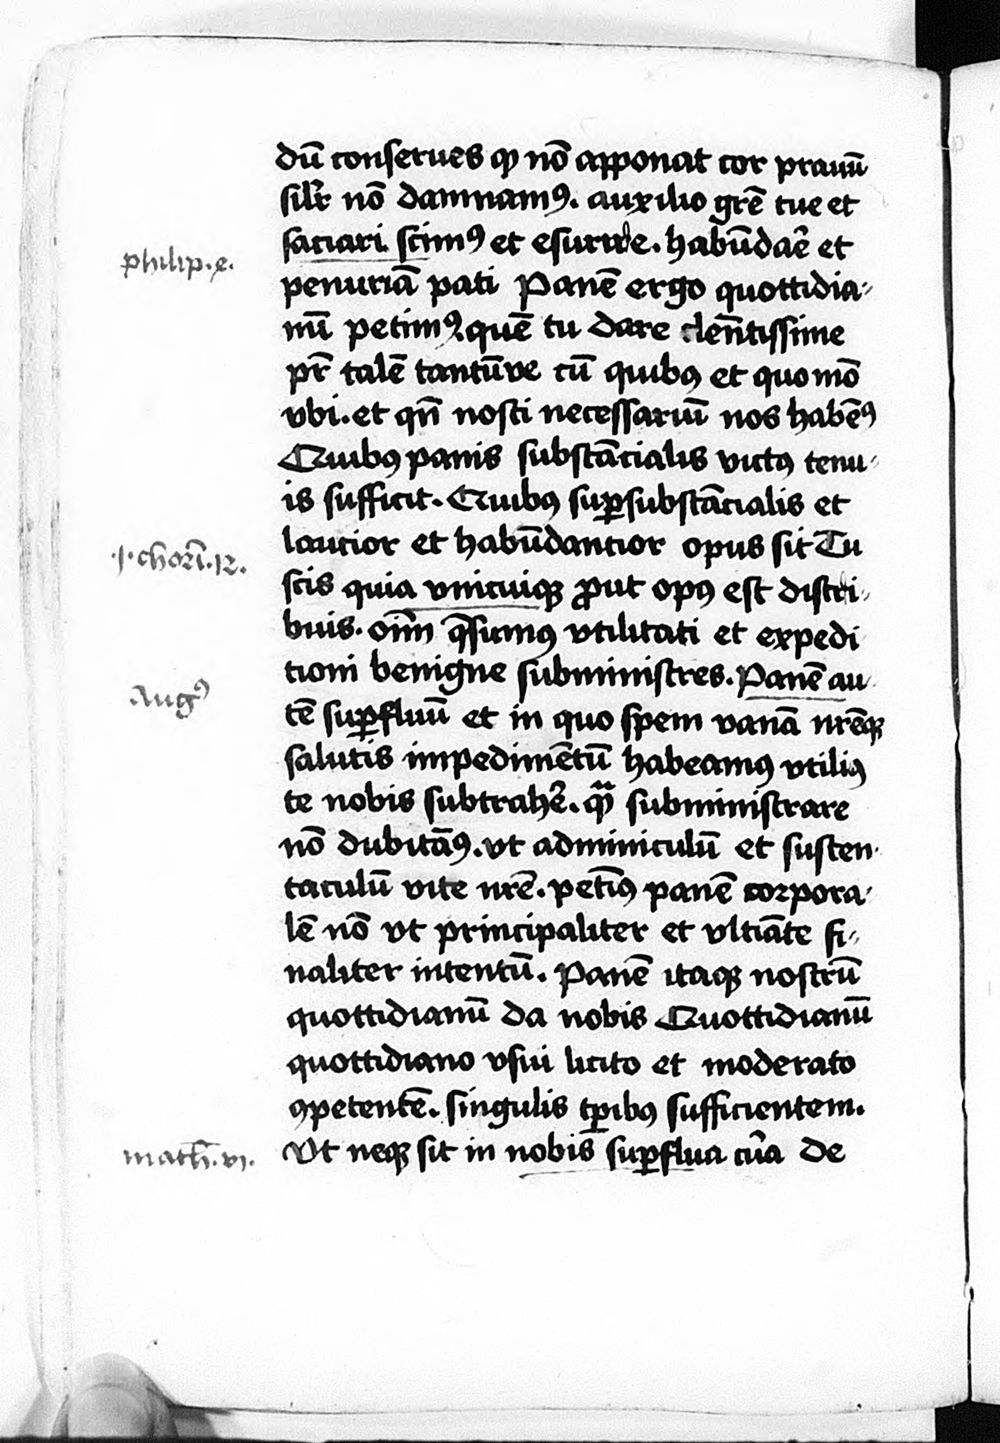 dū conserues qꝫ nō apponat cor prauū
silr̄ nō damnamꝰ. auxilio gr̄e tue et
saciari scimꝰ et esurire. habūdar̄e et
philip.4.
penuriā pati Panē ergo quottidia-
nū petimꝰ. quē tu dare clen̄tissime
pr̄ talē tantūve cū quibꝰ et quomō
vbi. et qn̄ nosti necessariū nos habēꝰ
Quibꝰ panis substācialis victꝰ tenu-
is sufficit. Quibꝰ suꝑsubstācialis et
laucior et habūdancior opus sit Tu
.1.chorī.12.
scis quia vnicuiqꝫ ꝓut opꝰ est distri-
buis. oīm q̄sumꝰ vtilitati et expedi
tioni benigne subministres. Panē au-
Augꝰ
tē suꝑfluū et in quo spem vanā nrēqꝫ
salutis impedimētū habeamꝰ vtiliꝰ
te nobis subtrahēr. q̄ꝫ subministrare
nō dubitāꝰ. vt adminiculū et susten-
taculū vite nrē. petīꝰ panē corpora-
lē nō vt principaliter et vltiāte fi-
naliter intentū. Panē itaqꝫ nostrū
quottidianū da nobis Quottidianū
quottidiano vsui licito et moderato
ꝯpetentē. singulis tꝑibꝰ sufficientem.
math̄.vi.
Vt neqꝫ sit in nobis suꝑflua cūa de